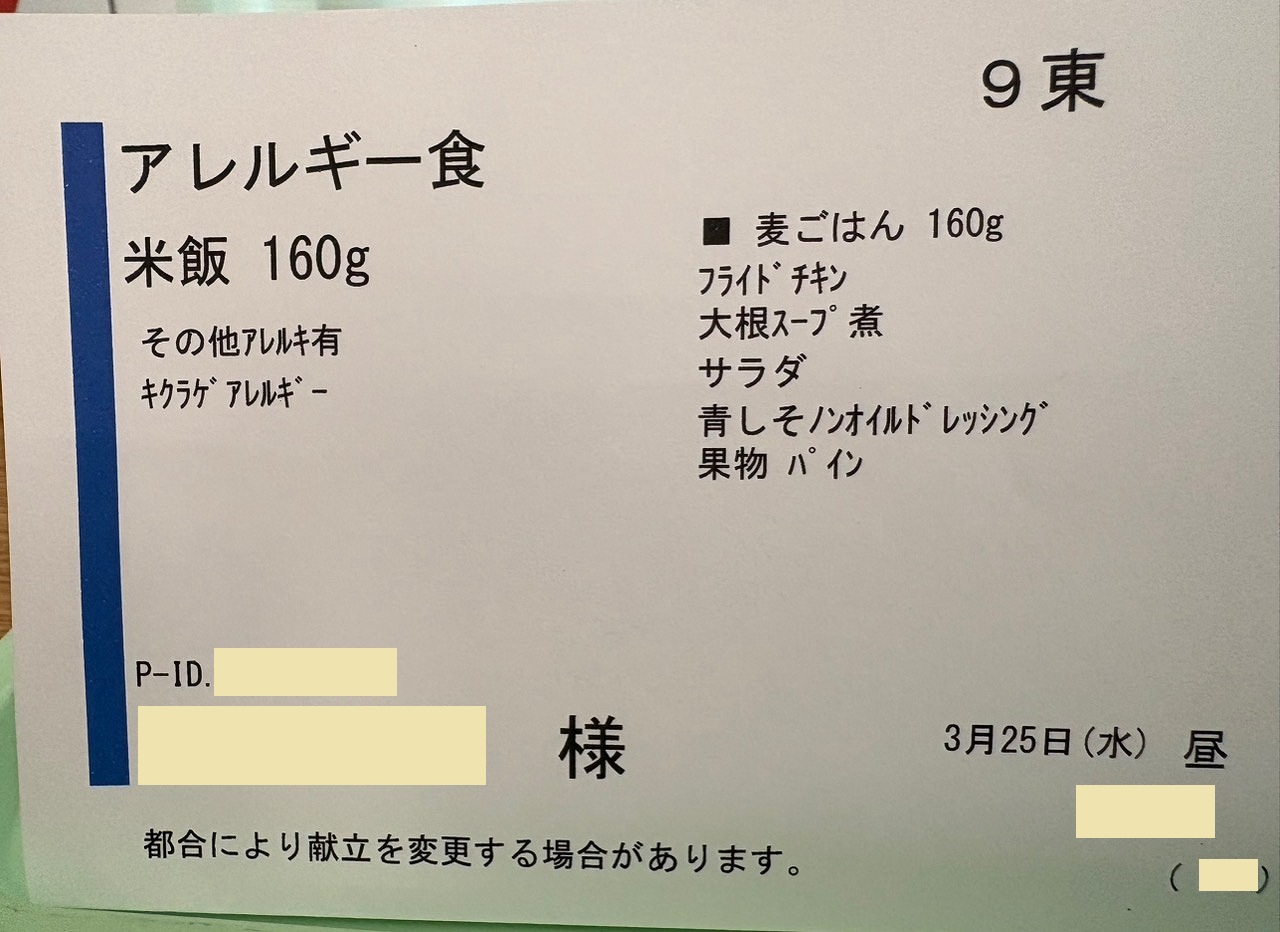 9東
アレルギー食
米飯 160g
その他ｱﾚﾙｷ有
ｷｸﾗｹﾞｱﾚﾙｷﾞｰ
■ 麦ごはん 160g
ﾌﾗｲﾄﾞﾁｷﾝ
大根ｽｰﾌﾟ煮
サラダ
青しそﾉﾝｵｲﾙﾄﾞﾚｯｼﾝｸﾞ
果物 ﾊﾟｲﾝ
P-ID.
様
3月25日(水) 昼
( )
都合により献立を変更する場合があります。